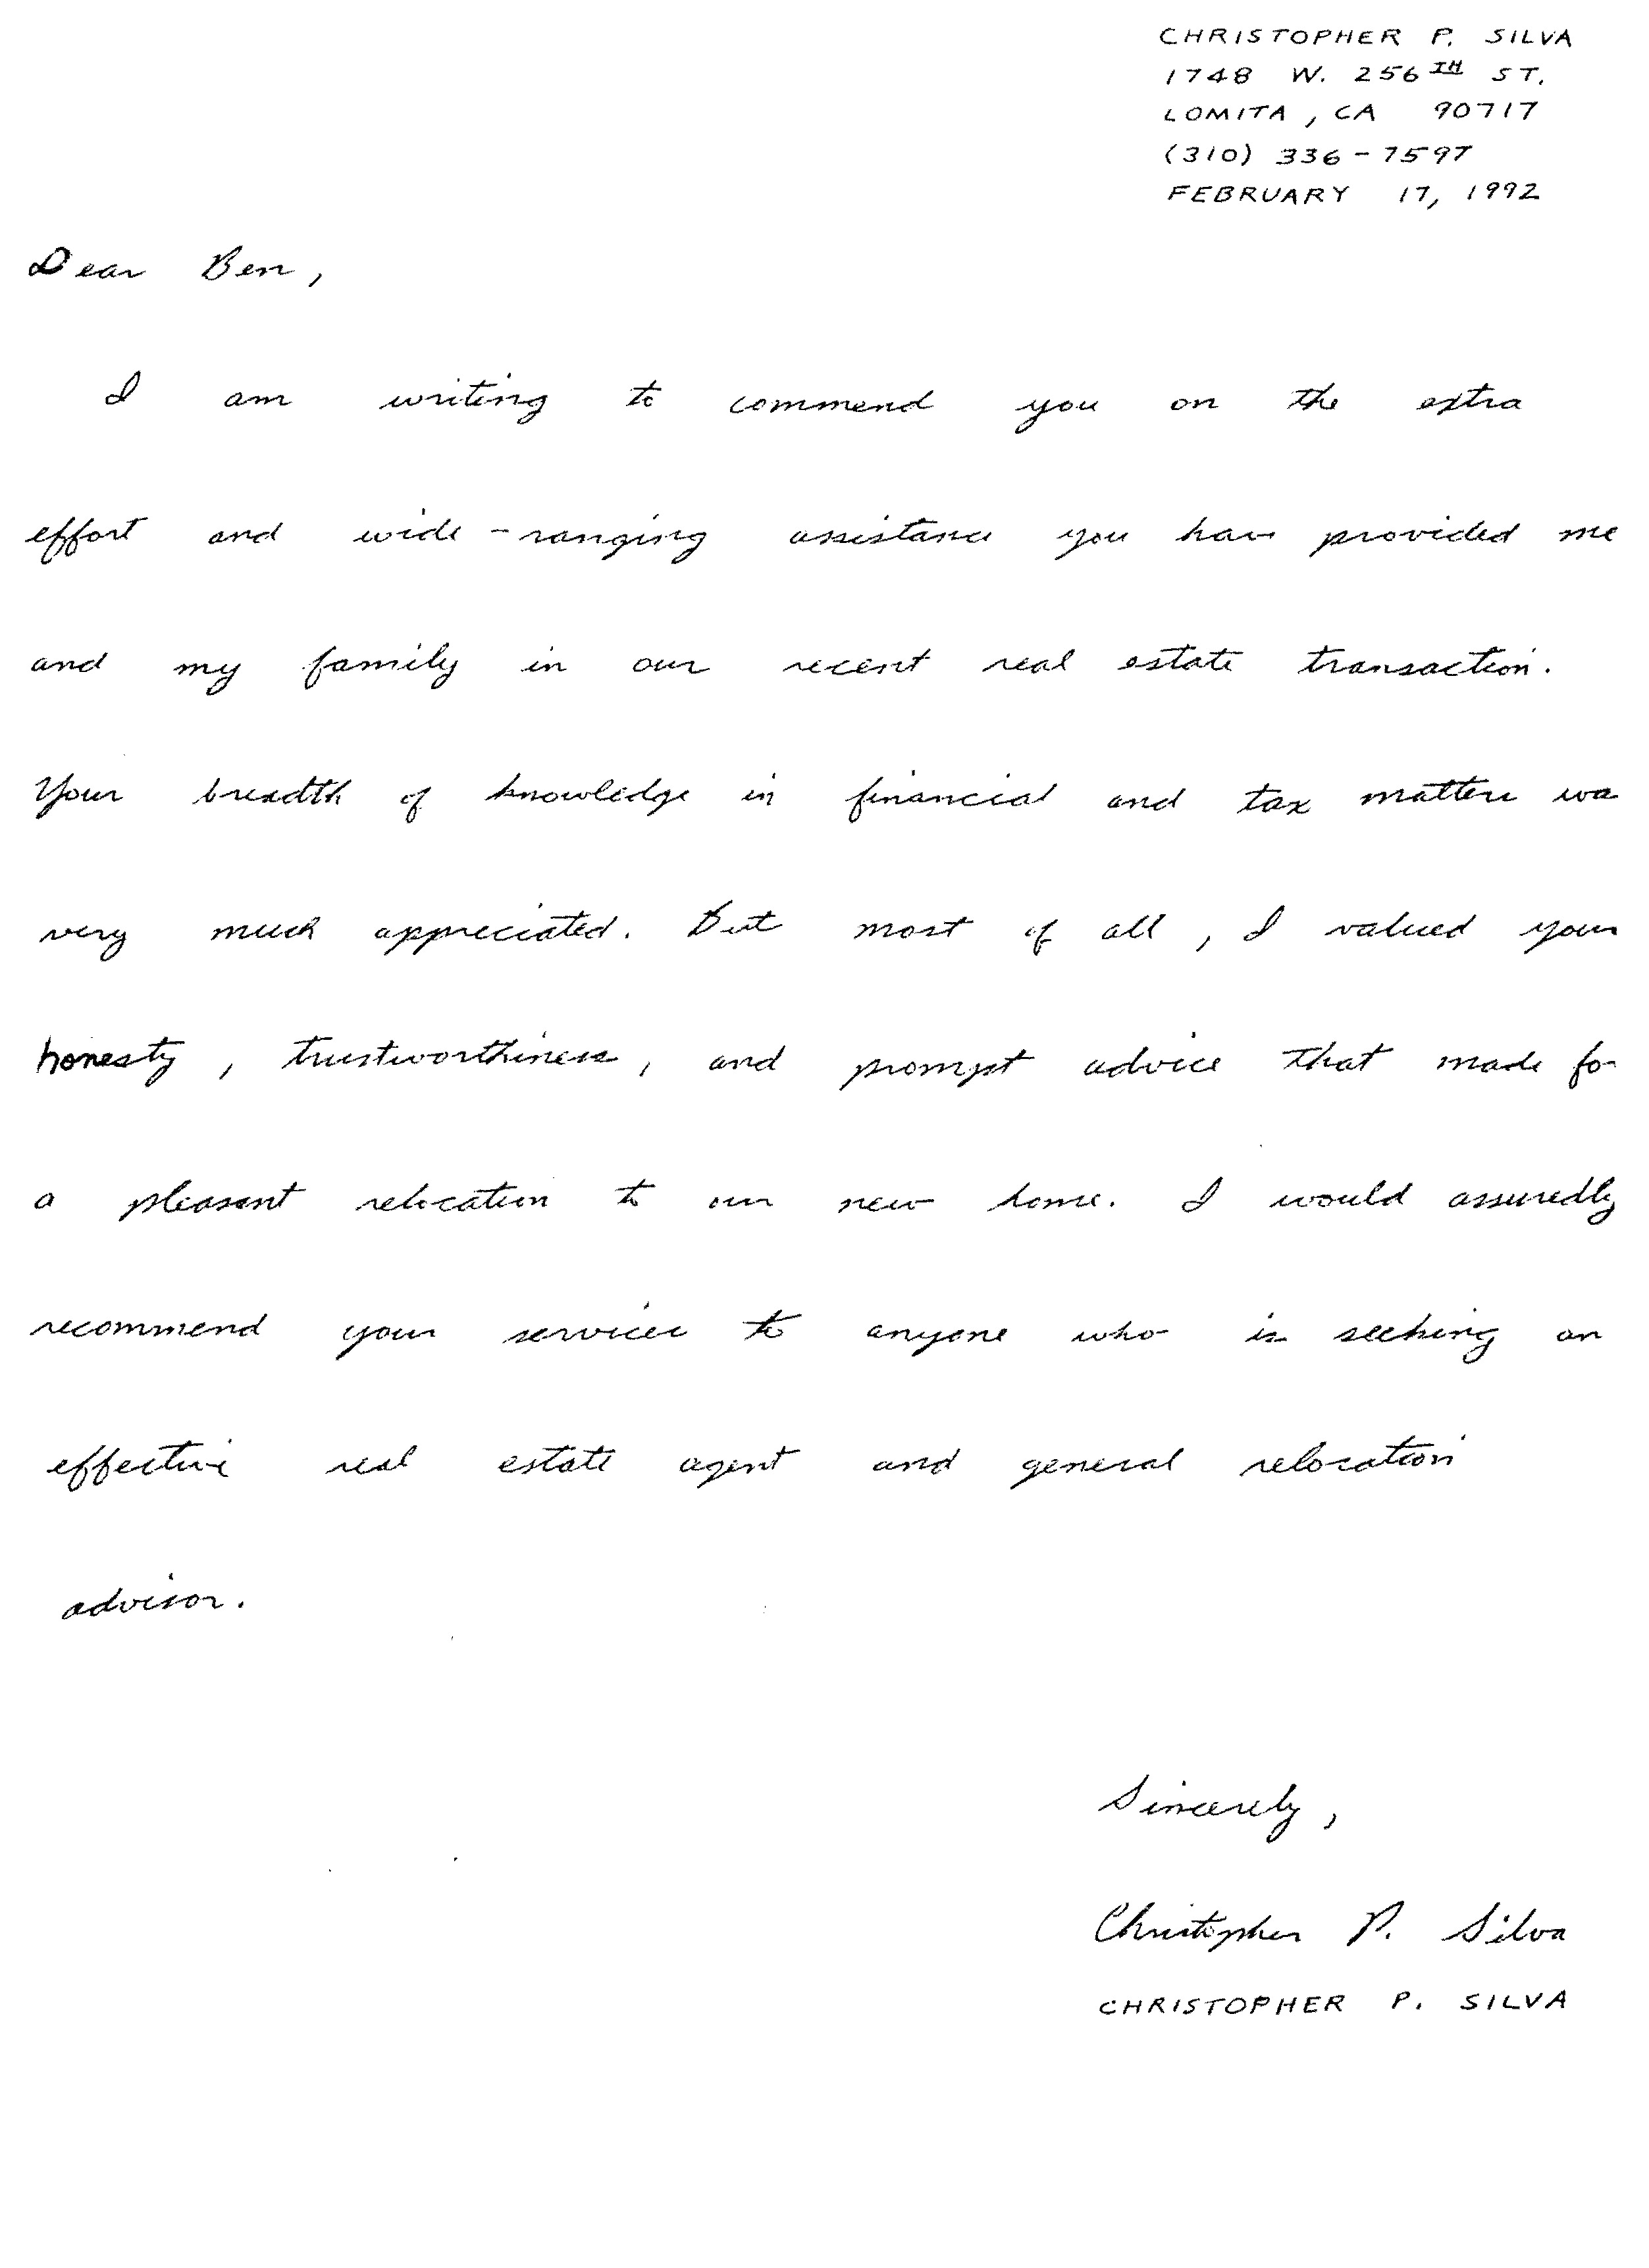 CHRISTOPHER P. SILVA
1748 W. 256TH ST.
LOMITA, CA 90717
(310) 336-7597
FEBRUARY 17, 1992
Dear Ben,
I am writing to commend you on the extra
effort and wide-ranging assistance you have provided me
and my family in our recent real estate transaction.
Your breadth of knowledge in financial and tax matters wa
very much appreciated. But most of all, I valued your
honesty, trustworthiness, and prompt advice that made for
a pleasant relocation to our new home. I would assuredly
recommend your services to anyone who is seeking an
effective real estate agent and general relocation
advisor.
Sincerely,
Christopher P. Silva
CHRISTOPHER P. SILVA